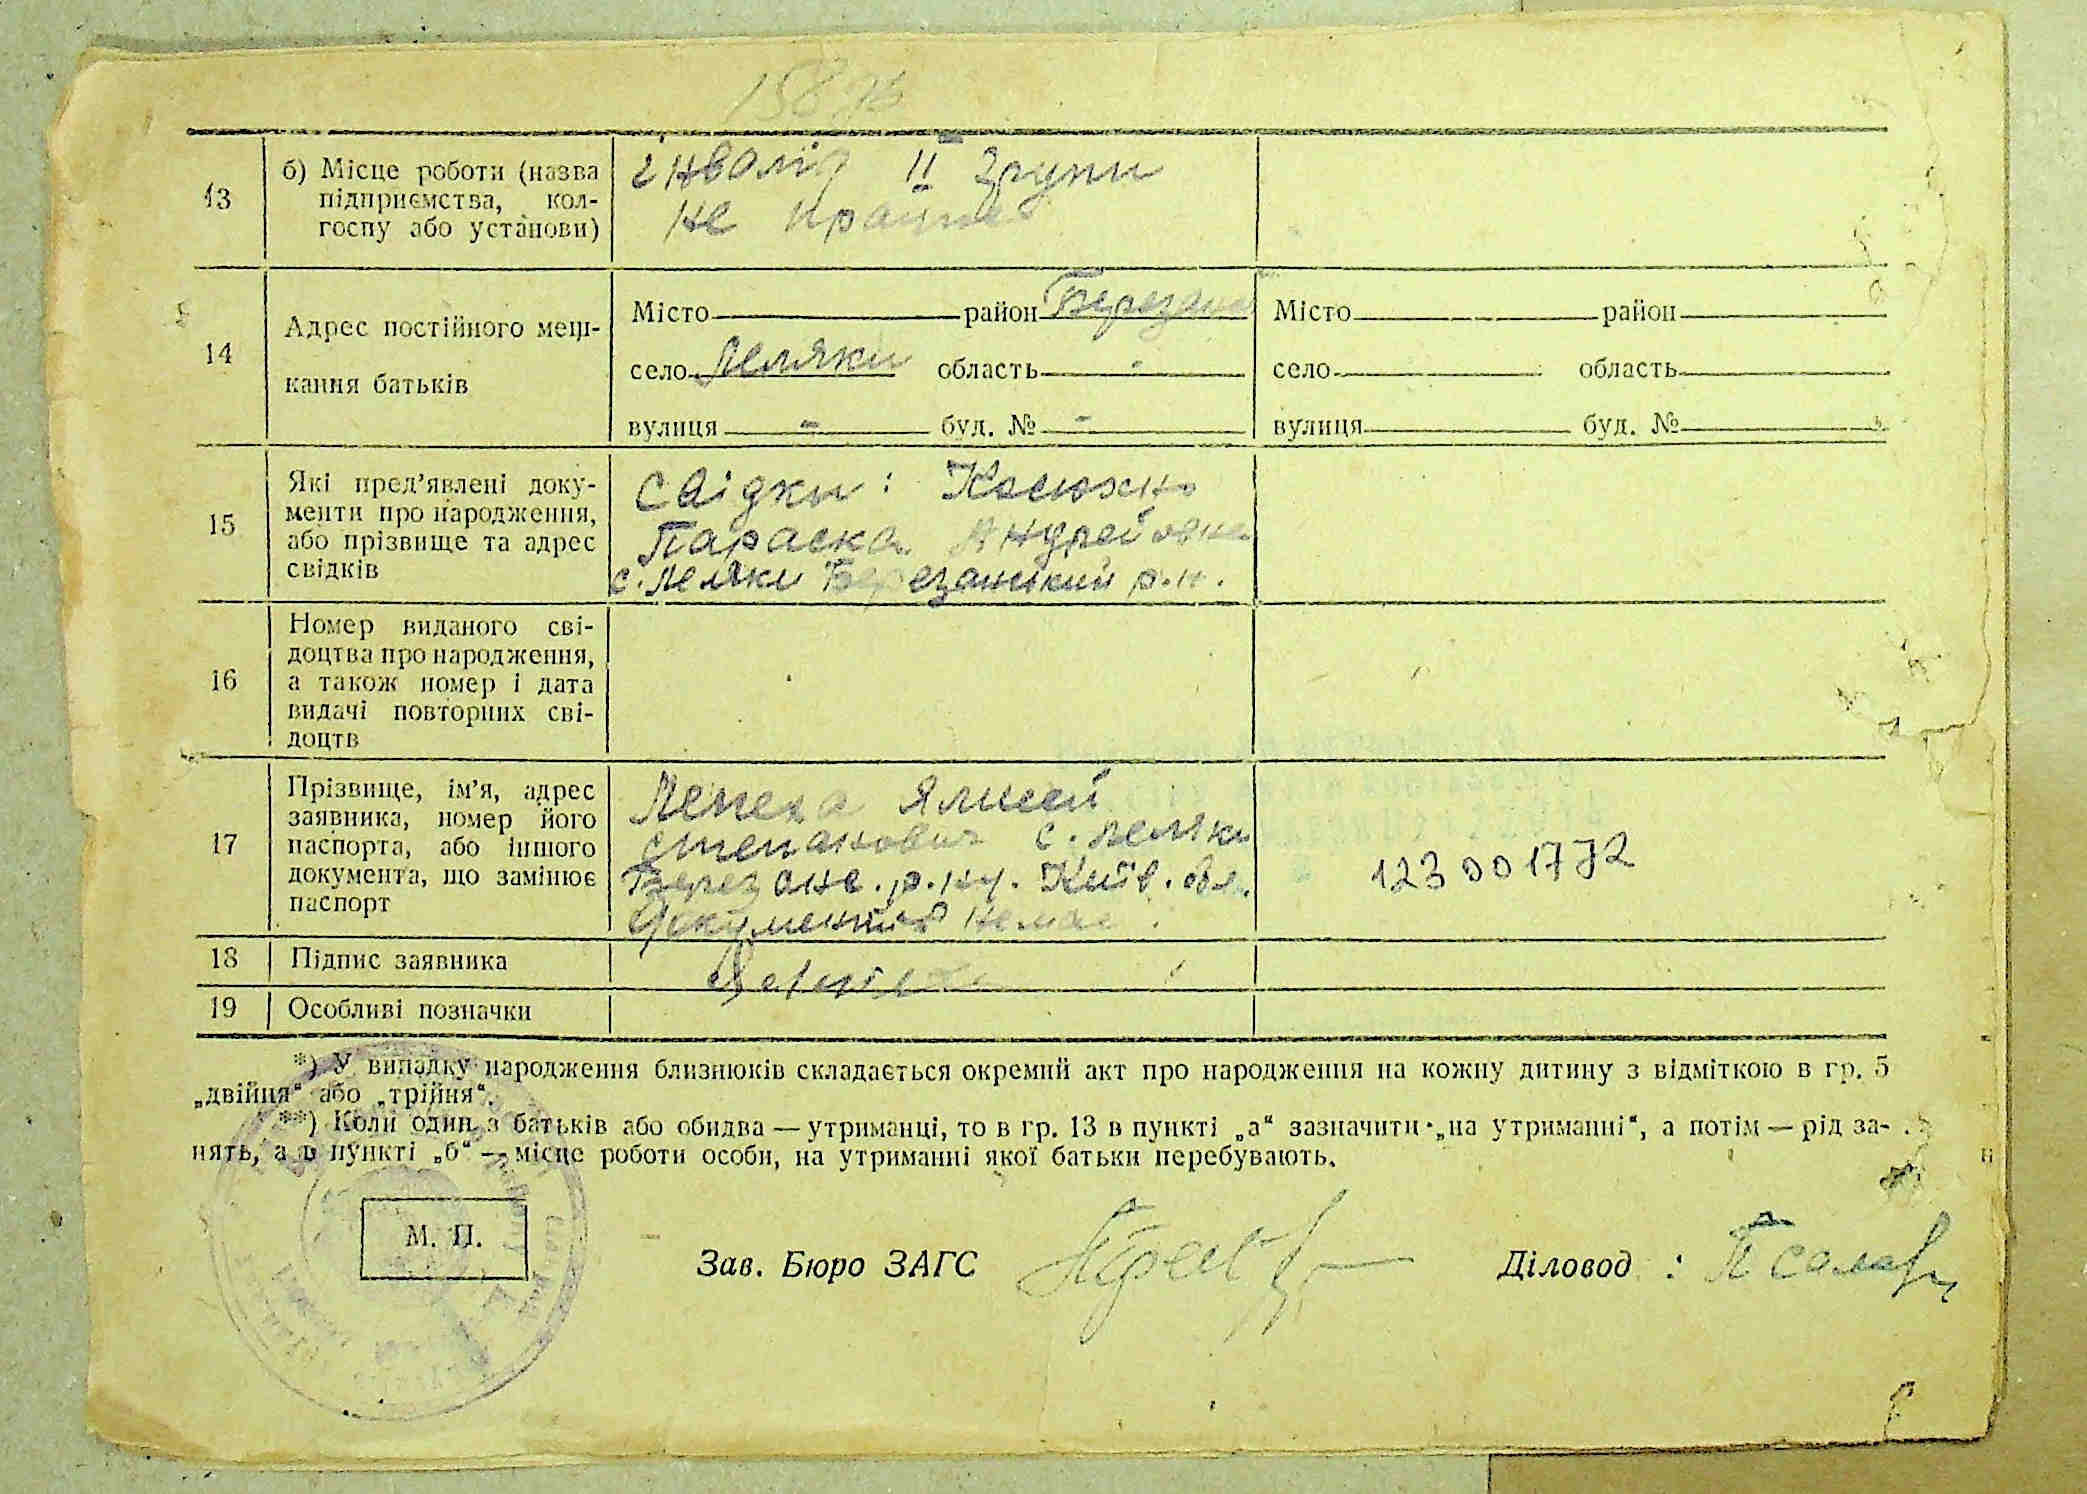 13
б) Місце роботи (назва
підприємства, кол-
госпу або установи)
інвалід II групи
не працює
14
Адрес постійного меш-
кання батьків
Місто район Березанс
село Лемяки область -
вулиця - буд. № -
Місто район
село область
вулиця буд. №
15
Які пред'явлені доку-
менти про народження,
або прізвище та адрес
свідків
Свідки:
Параска Андрейовна
с. Лемяки Березанський р.н.
16
Номер виданого сві-
доцтва про народження,
а також номер і дата
видачі повторних сві-
доцтв
17
Прізвище, ім'я, адрес
заявника, номер його
паспорта, або іншого
документа, що замінює
паспорт
степанович с. Лемяки
Березанс. р.ну. Київ. обл.
документів немає.
123001772
18
Підпис заявника
19
Особливі позначки
*) У випадку народження близнюків складається окремий акт про народження на кожну дитину з відміткою в гр. 5
„двійня“ або „трійня“.
**) Коли один з батьків або обидва — утриманці, то в гр. 13 в пункті „а“ зазначити „на утриманні“, а потім — рід за-
нять, а в пункті „б“ — місце роботи особи, на утриманні якої батьки перебувають.
М. П.
Зав. Бюро ЗАГС
Діловод :